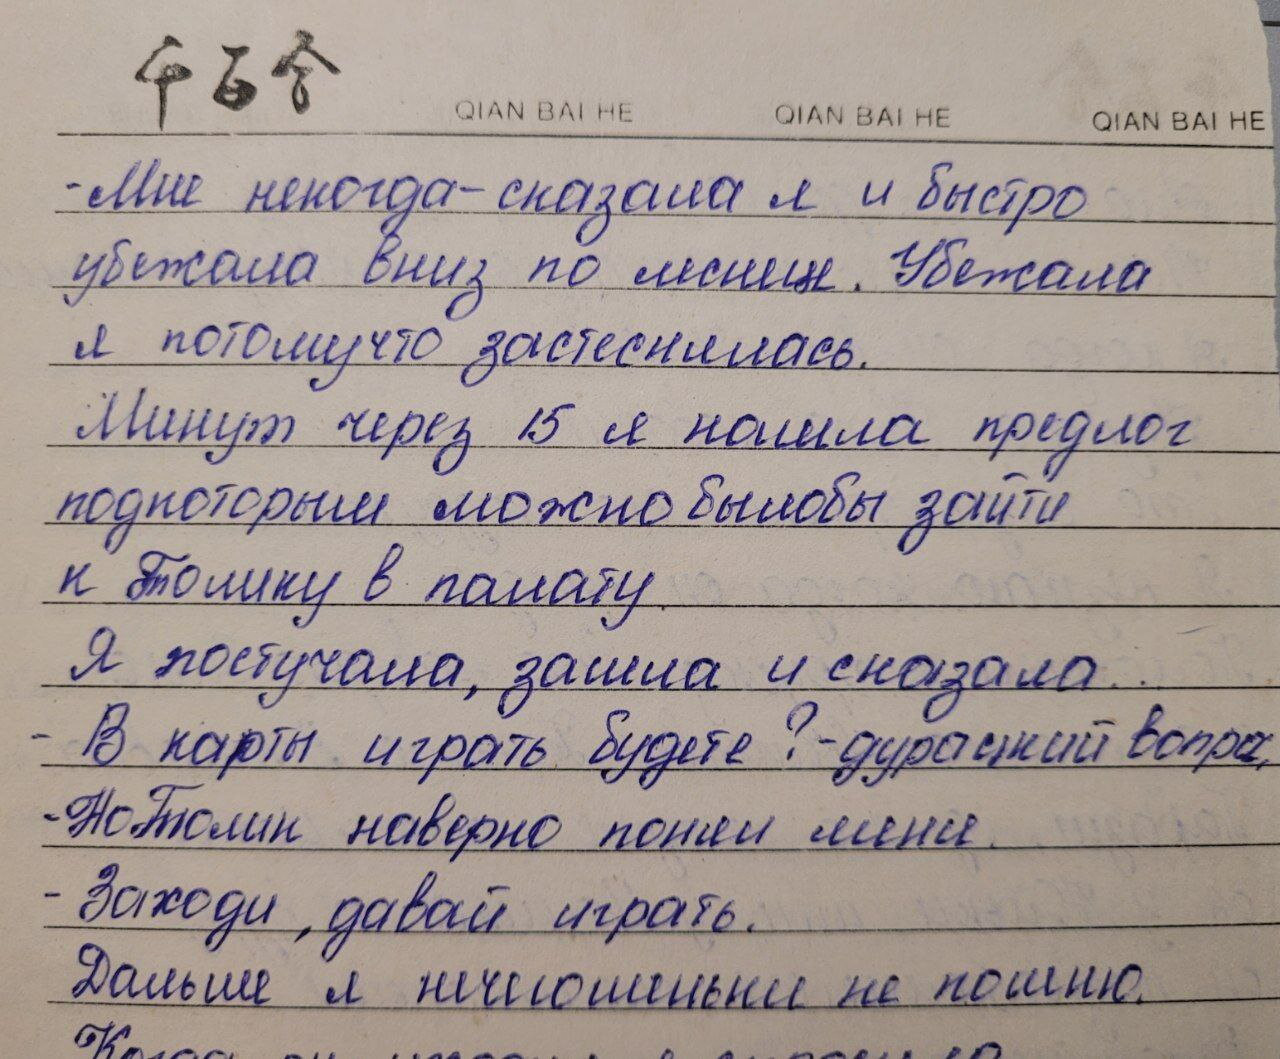 千百合
QIAN BAI HE QIAN BAI HE QIAN BAI HE
-Мне некогда-сказала я и быстро
убежала вниз по лесниц. Убежала
я потомучто застеснялась.
Минут через 15 я нашла предлог
подкоторым можно былобы зайти
к Толику в палату.
Я постучала, зашла и сказала..
- В карты играть будете?-дурацкий вопрос,
-Но Толик наверно понял меня.
- Заходи, давай играть.
Дальше я нечегошеньки не помню.